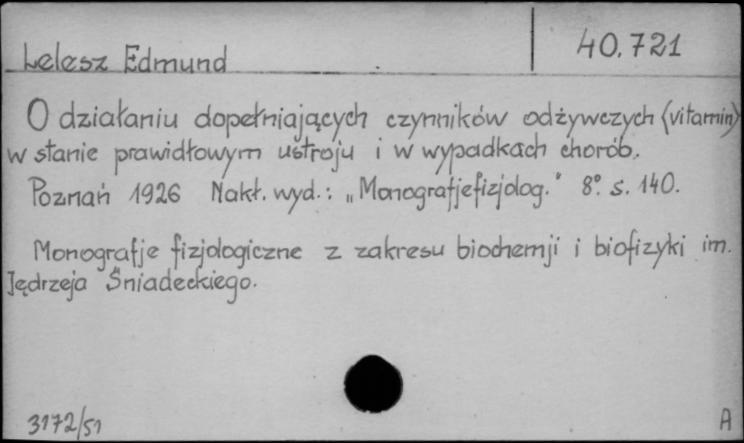 Lelesz Edmund 40.721
O działaniu dopełniających czynników odżywczych (vitamin)
w stanie prawidłowym ustroju i w wypadkach chorób.
Poznań 1926 Nakł. wyd.: „Monografjefizjolog." 8° s. 140.
Monografje fizjologiczne z zakresu biochemji i biofizyki im.
Jędrzeja Śniadeckiego.
3172/51 A